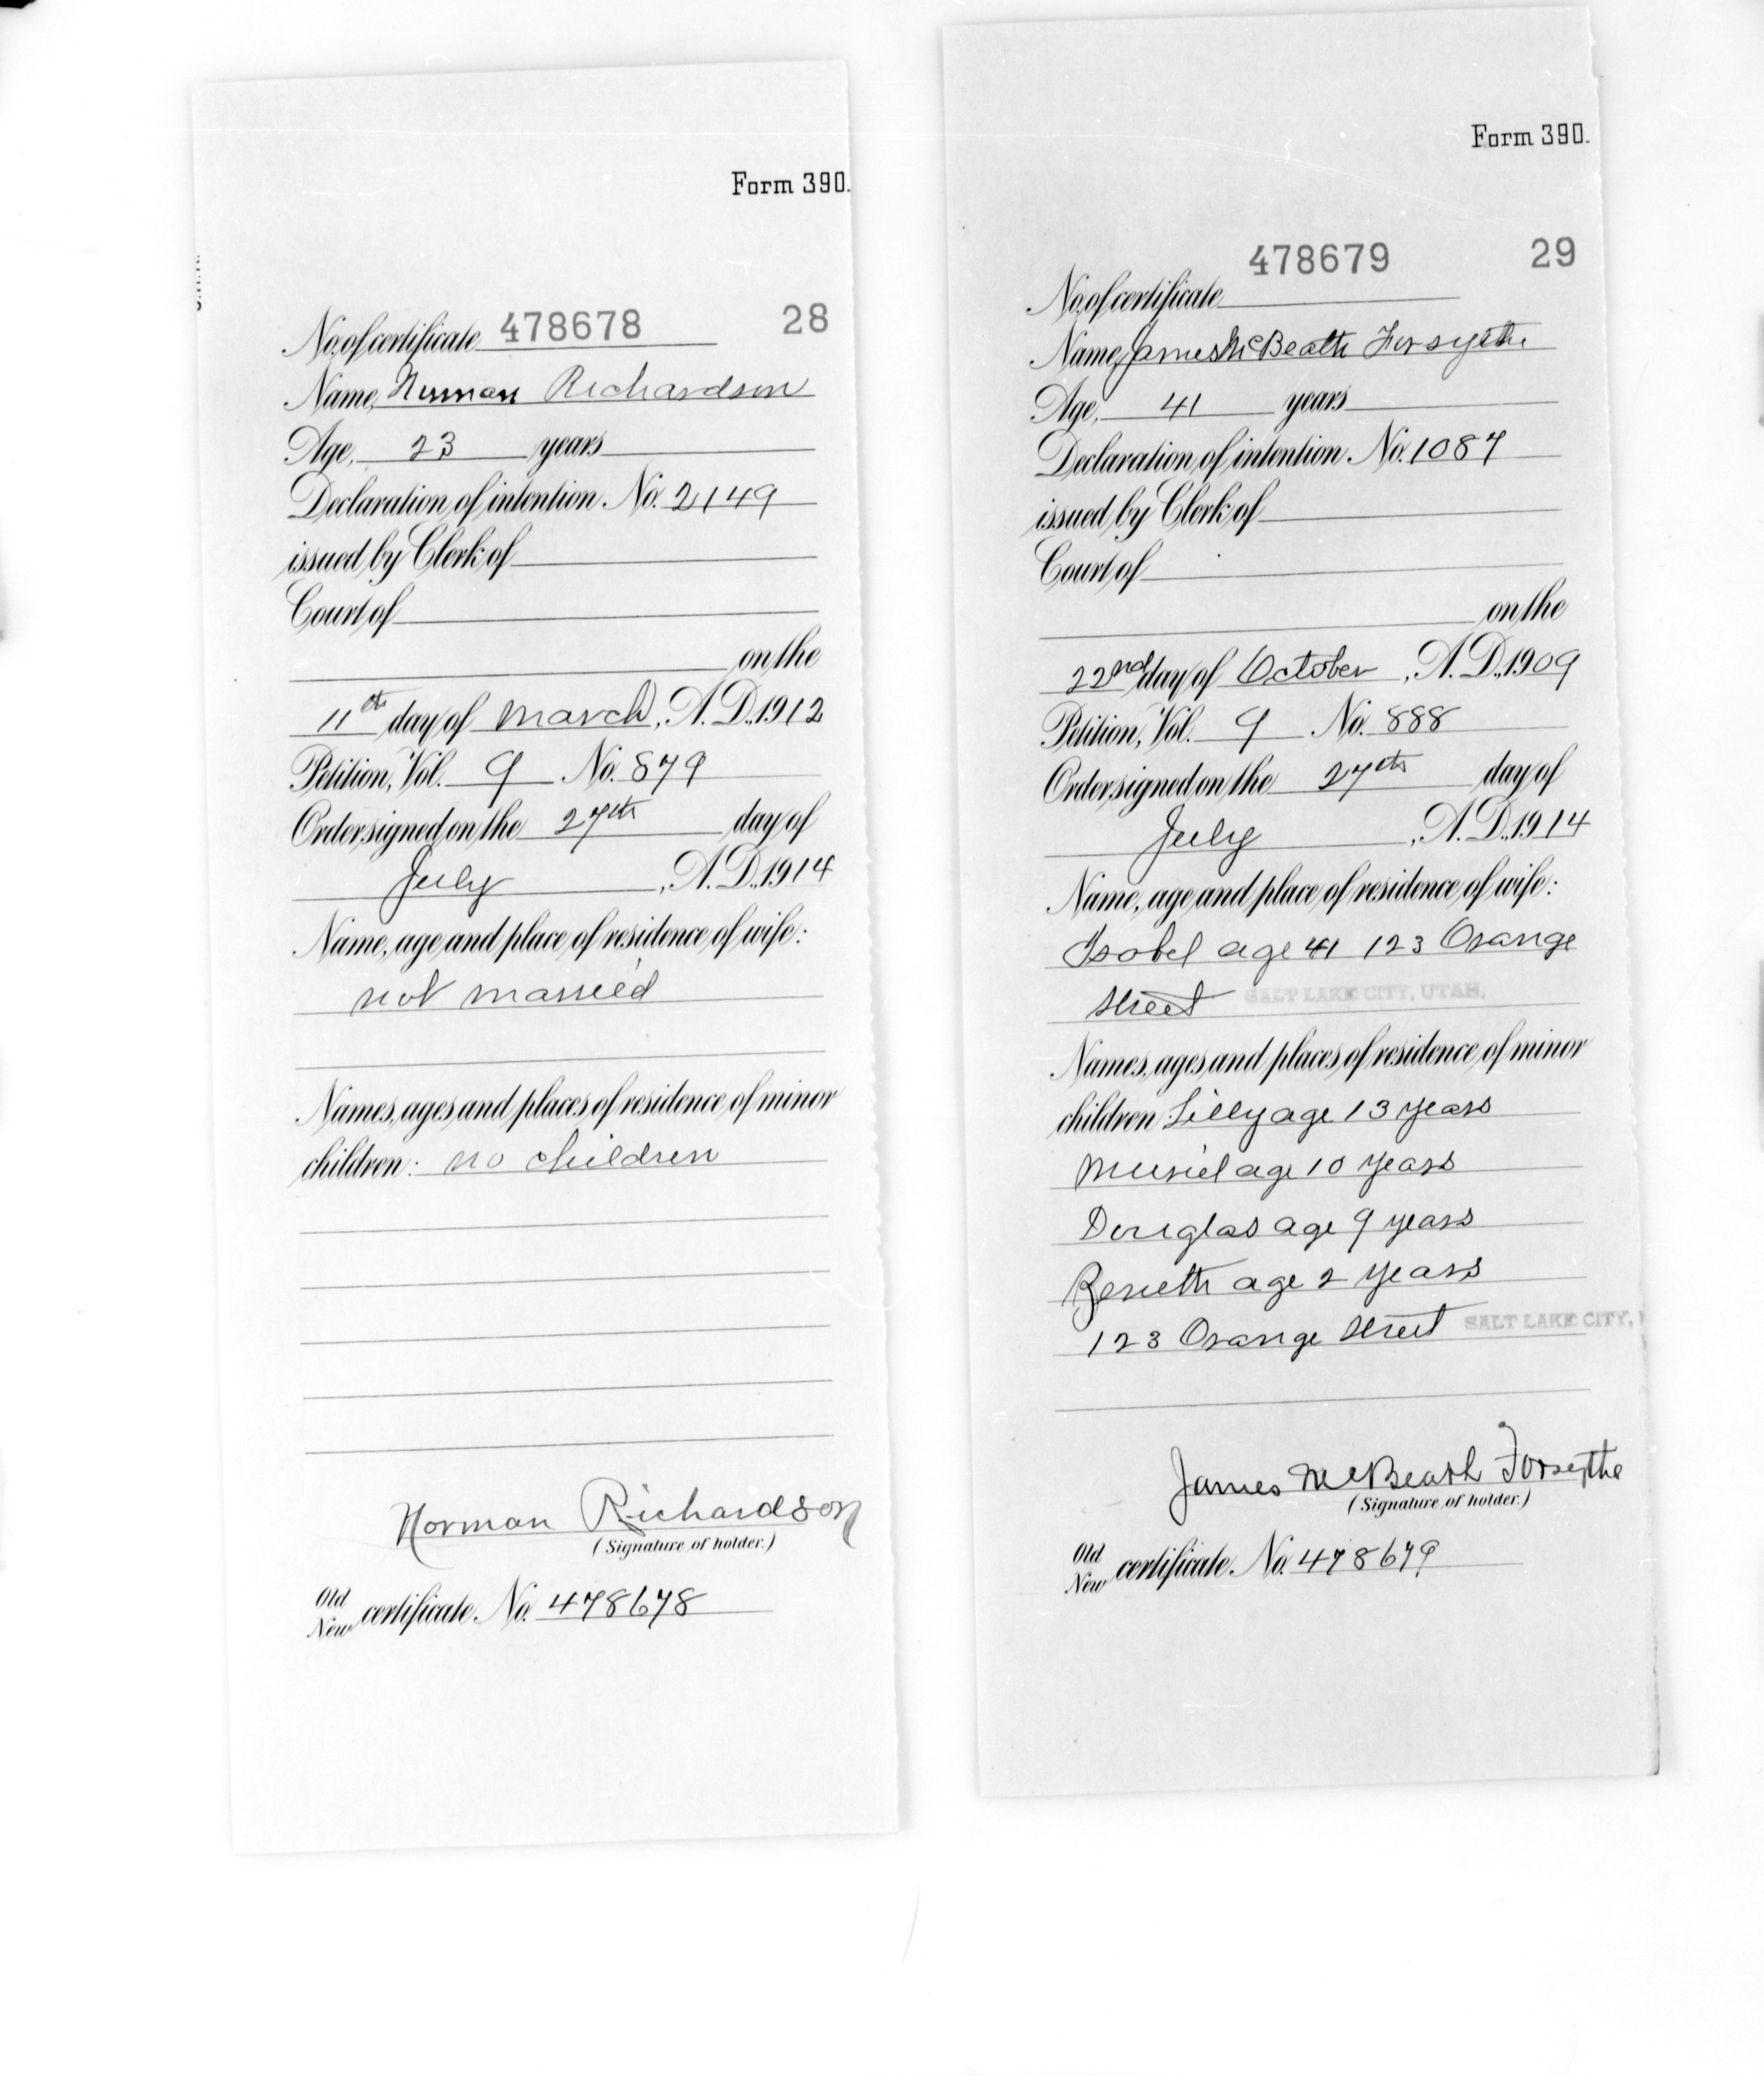 Form 390.
No. of certificate 478678 28
Name, Norman Richardson
Age, 23 years
Declaration of intention No. 2149
issued by Clerk of
Court of
on the
11th day of March, A.D. 1912
Petition, Vol. 9 No. 879
Order signed on the 27th day of
July, A.D. 1914
Name, age and place of residence of wife:
not married
Names, ages and places of residence of minor
children: no children
Norman Richardson
(Signature of holder.)
Old
New certificate No. 478678
Form 390.
478679 29
No. of certificate
Name, James McBeath Forsythe
Age, 41 years
Declaration of intention No. 1087
issued by Clerk of
Court of
on the
22nd day of October, A.D. 1909
Petition, Vol. 9 No. 888
Order signed on the 27th day of
July, A.D. 1914
Name, age and place of residence of wife:
Isobel age 41 123 Orange
Street SALT LAKE CITY, UTAH.
Names, ages and places of residence of minor
children Lilly age 13 years
Muriel age 10 years
Douglas age 9 years
age 2 years
123 Orange Street SALT LAKE CITY,
James McBeath Forsythe
(Signature of holder.)
Old
New certificate No. 478679